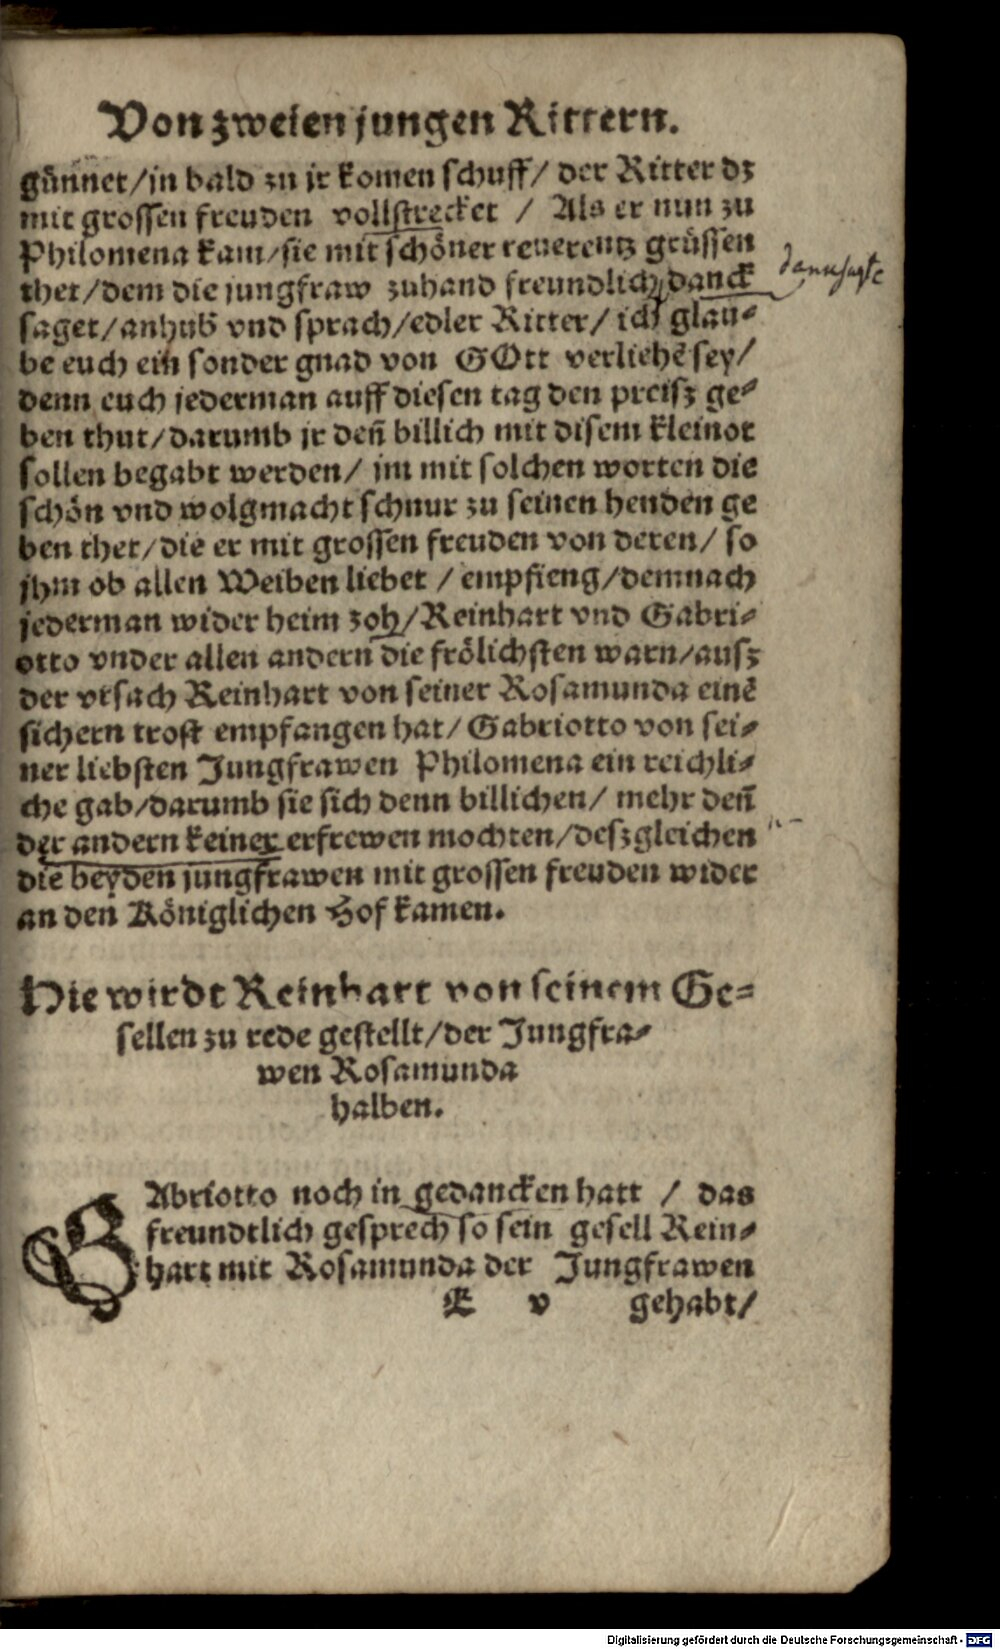 Von zweien jungen Rittern.
günnet/jn bald zu jr komen schuff/ der Ritter dz
mit grossen freuden vollstrecket / Als er nun zu
Philomena kam/sie mit schöner reuerentz grüssen
thet/dem die jungfraw zuhand freundlich danck
saget/anhub vnd sprach/edler Ritter/ ich glau-
be euch ein sonder gnad von GOtt verliehē sey/
denn euch jederman auff diesen tag den preisz ge-
ben thut/darumb jr deñ billich mit disem kleinot
sollen begabt werden/ jm mit solchen worten die
schön vnd wolgmacht schnur zu seinen henden ge
ben thet/die er mit grossen freuden von deren/ so
jhm ob allen Weiben liebet / empfieng/demnach
jederman wider heim zoh/Reinhart vnd Gabri-
otto vnder allen andern die frölichsten warn/ausz
der vrsach Reinhart von seiner Rosamunda einē
sichern trost empfangen hat/ Gabriotto von sei-
ner liebsten Jungfrawen Philomena ein reichli-
che gab/darumb sie sich denn billichen/ mehr deñ
der andern keiner erfrewen mochten/deszgleichen
die beyden jungfrawen mit grossen freuden wider
an den Königlichen Hof kamen.
Hie wirdt Reinhart von seinem Ge-
sellen zu rede gestellt/der Jungfra-
wen Rosamunda
halben.
GAbriotto noch in gedancken hatt / das
freundtlich gesprech so sein gesell Rein-
hart mit Rosamunda der Jungfrawen
E v gehabt/
Digitalisierung gefördert durch die Deutsche Forschungsgemeinschaft - DFG